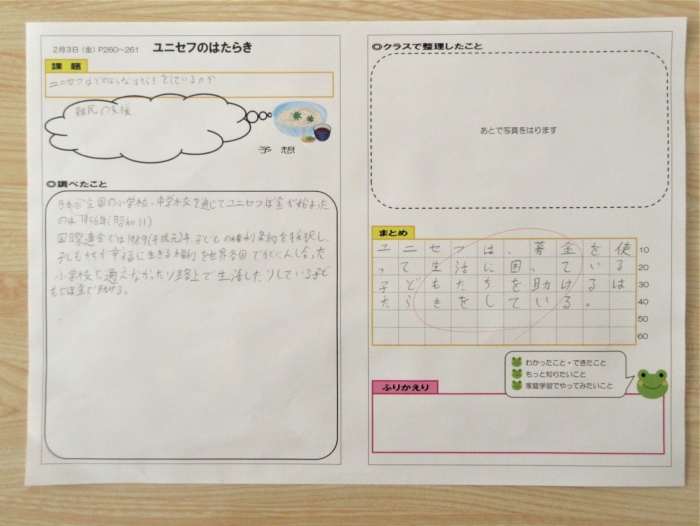 2月3日（金）P260～261 ユニセフのはたらき
課 題
ユニセフはどのようなはたらきをしているのか
難民の支援
予 想
◎調べたこと
全国の小学校、中学校を通じてユニセフぼ金が始まった
のは
国際連合では1989(平成元)年、子どもの権利条約を採択し、
子どもたちが幸福に生きる権利を世界各国でかくにんし合った
小学校に通えなかったり路上で生活したりしている子ど
もにぼ金で助ける。
◎クラスで整理したこと
あとで写真をはります
まとめ
ユニセフは、募金を使 10
って生活に困っている 20
子どもたちを助けるは 30
たらきをしている。 40
50
60
わかったこと・できたこと
もっと知りたいこと
家庭学習でやってみたいこと
ふりかえり